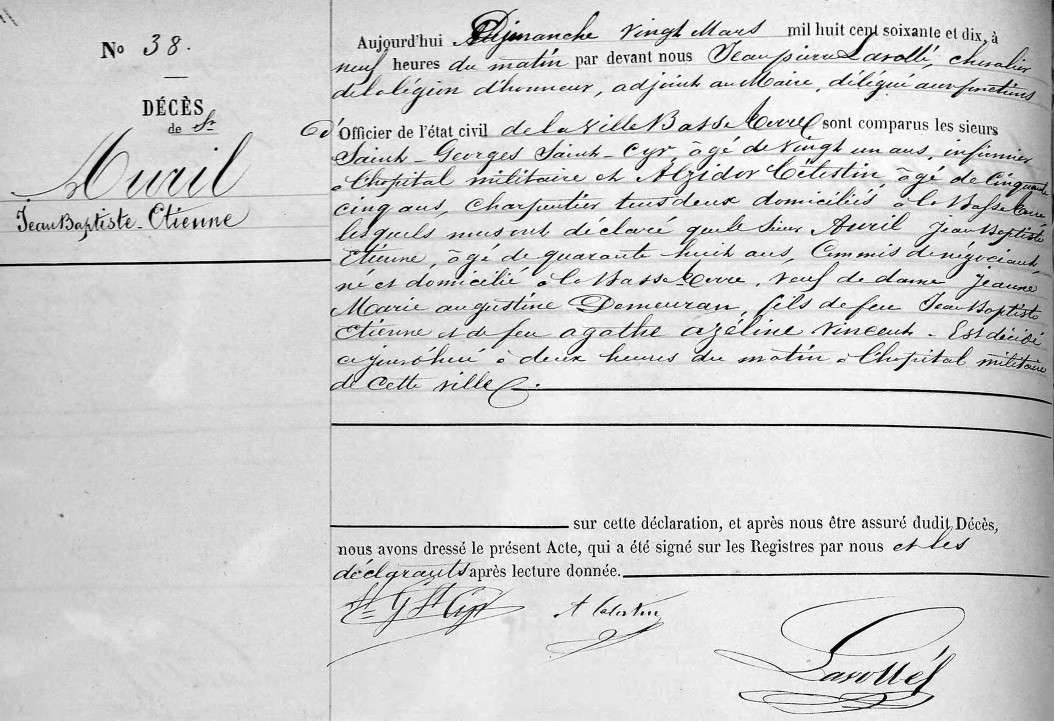 No 38.
DÉCÈS
de Sr
Auril
Jean Baptiste Etienne
Aujourd'hui Dimanche vingt Mars mil huit cent soixante et dix, à
neuf heures du matin par devant nous Jean pierre Larollé, chevalier
de la légion d'honneur, adjoint au Maire, délégué aux fonctions
d'Officier de l'état civil de la ville Basse Terre sont comparus les sieurs
Saint-Georges Saint-Cyr, âgé de vingt un ans, infirmier
à l'hopital militaire et Alzidor Célestin, âgé de cinquante
cinq ans, Charpentier tous deux domiciliés à la Basse Terre
lesquels nous ont déclaré que le sieur Auril Jean Baptiste
Etienne, âgé de quarante huit ans, Commis de négociant,
né et domicilié à la Basse Terre, veuf de dame Jeanne
Marie augustine Demeuran, fils de feu Jean Baptiste
Etienne et de feu agathe azéline Vincent. Est décédé
ce jourd'hui à deux heures du matin à l'hopital militaire
de cette ville.
sur cette déclaration, et après nous être assuré dudit Décès,
nous avons dressé le présent Acte, qui a été signé sur les Registres par nous et les
déclarants après lecture donnée.
St G St Cyr
A Celestin
Larollé